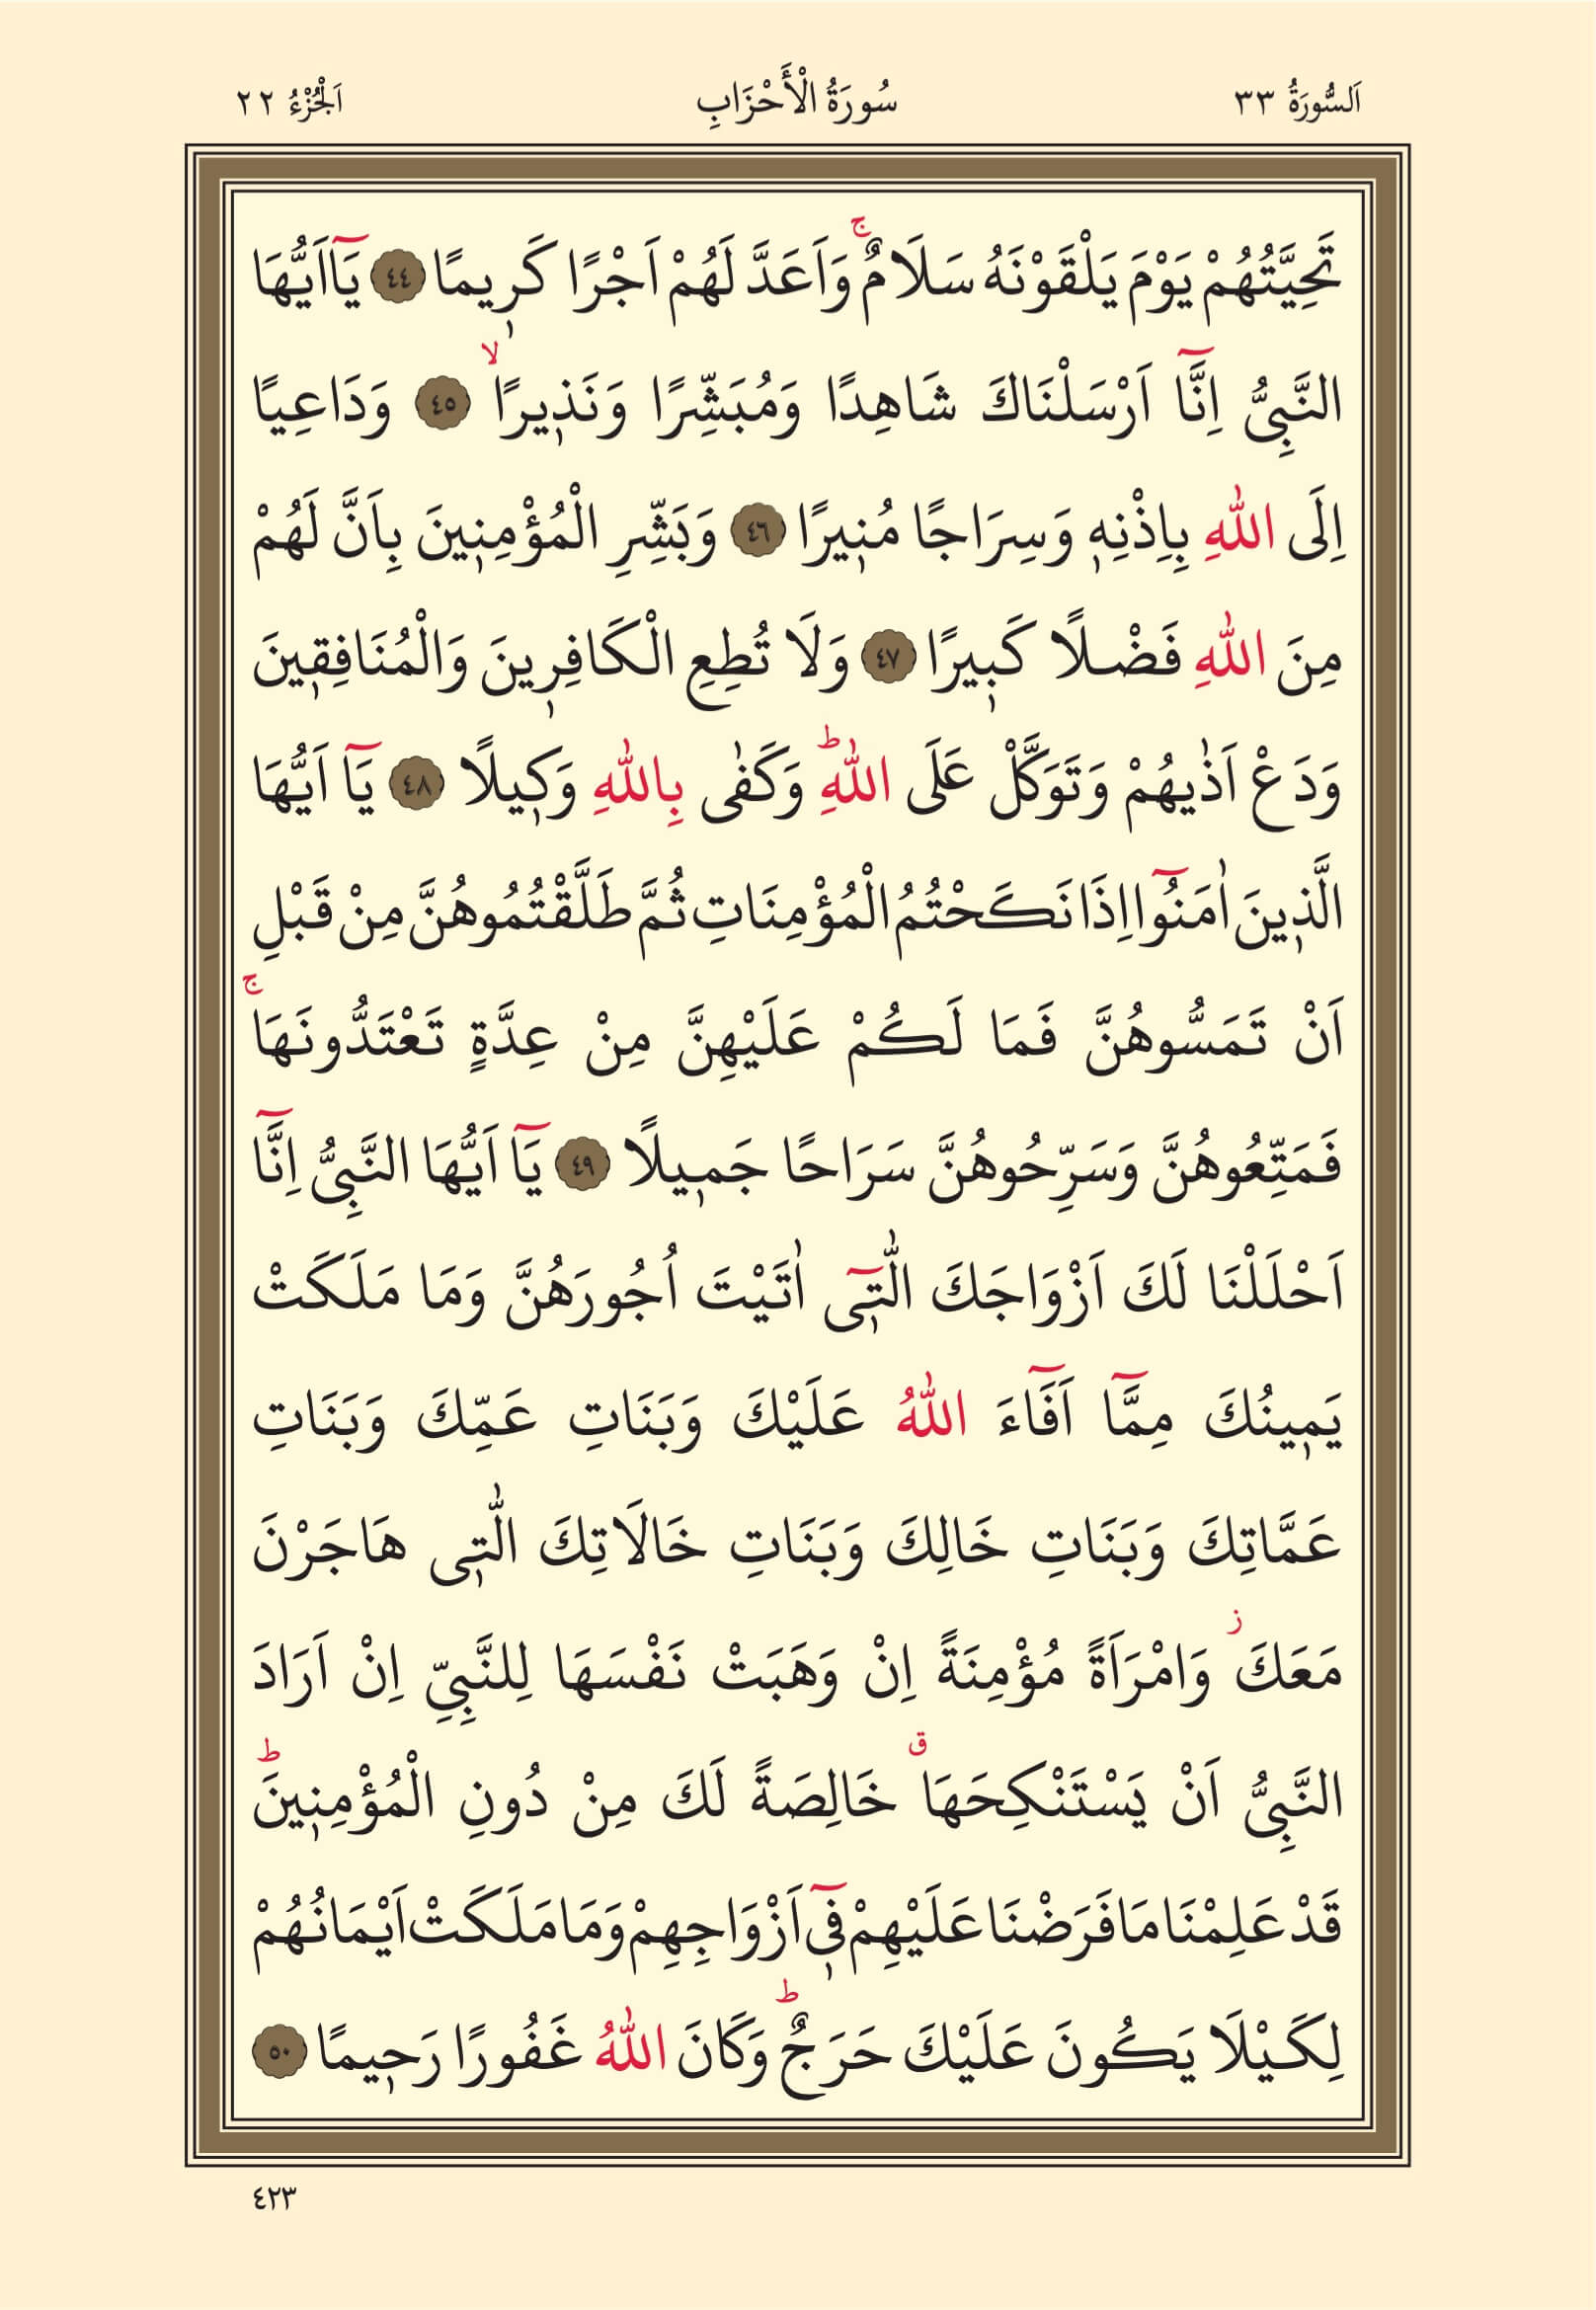 اَلسُّورَةُ ٣٣ سُورَةُ الْأَحْزَابِ اَلْجُزْءُ ٢٢
تَحِيَّتُهُمْ يَوْمَ يَلْقَوْنَهُ سَلَامٌۚ وَاَعَدَّ لَهُمْ اَجْرًا كَر۪يمًا ٤٤ يَآاَيُّهَا
النَّبِيُّ اِنَّآ اَرْسَلْنَاكَ شَاهِدًا وَمُبَشِّرًا وَنَذ۪يرًاۙ ٤٥ وَدَاعِيًا
اِلَى اللّٰهِ بِاِذْنِه۪ وَسِرَاجًا مُن۪يرًا ٤٦ وَبَشِّرِ الْمُؤْمِن۪ينَ بِاَنَّ لَهُمْ
مِنَ اللّٰهِ فَضْلًا كَب۪يرًا ٤٧ وَلَا تُطِعِ الْكَافِر۪ينَ وَالْمُنَافِق۪ينَ
وَدَعْ اَذٰيهُمْ وَتَوَكَّلْ عَلَى اللّٰهِؕ وَكَفٰى بِاللّٰهِ وَك۪يلًا ٤٨ يَآ اَيُّهَا
الَّذ۪ينَ اٰمَنُٓوا اِذَا نَكَحْتُمُ الْمُؤْمِنَاتِ ثُمَّ طَلَّقْتُمُوهُنَّ مِنْ قَبْلِ
اَنْ تَمَسُّوهُنَّ فَمَا لَكُمْ عَلَيْهِنَّ مِنْ عِدَّةٍ تَعْتَدُّونَهَاۚ
فَمَتِّعُوهُنَّ وَسَرِّحُوهُنَّ سَرَاحًا جَم۪يلًا ٤٩ يَآ اَيُّهَا النَّبِيُّ اِنَّآ
اَحْلَلْنَا لَكَ اَزْوَاجَكَ الّٰت۪ٓى اٰتَيْتَ اُجُورَهُنَّ وَمَا مَلَكَتْ
يَم۪ينُكَ مِمَّآ اَفَآءَ اللّٰهُ عَلَيْكَ وَبَنَاتِ عَمِّكَ وَبَنَاتِ
عَمَّاتِكَ وَبَنَاتِ خَالِكَ وَبَنَاتِ خَالَاتِكَ الّٰت۪ى هَاجَرْنَ
مَعَكَؗ وَامْرَاَةً مُؤْمِنَةً اِنْ وَهَبَتْ نَفْسَهَا لِلنَّبِيِّ اِنْ اَرَادَ
النَّبِيُّ اَنْ يَسْتَنْكِحَهَاࣗ خَالِصَةً لَكَ مِنْ دُونِ الْمُؤْمِن۪ينَؕ
قَدْ عَلِمْنَا مَا فَرَضْنَا عَلَيْهِمْ ف۪ٓى اَزْوَاجِهِمْ وَمَا مَلَكَتْ اَيْمَانُهُمْ
لِكَيْلَا يَكُونَ عَلَيْكَ حَرَجٌؕ وَكَانَ اللّٰهُ غَفُورًا رَح۪يمًا ٥٠
٤٢٣